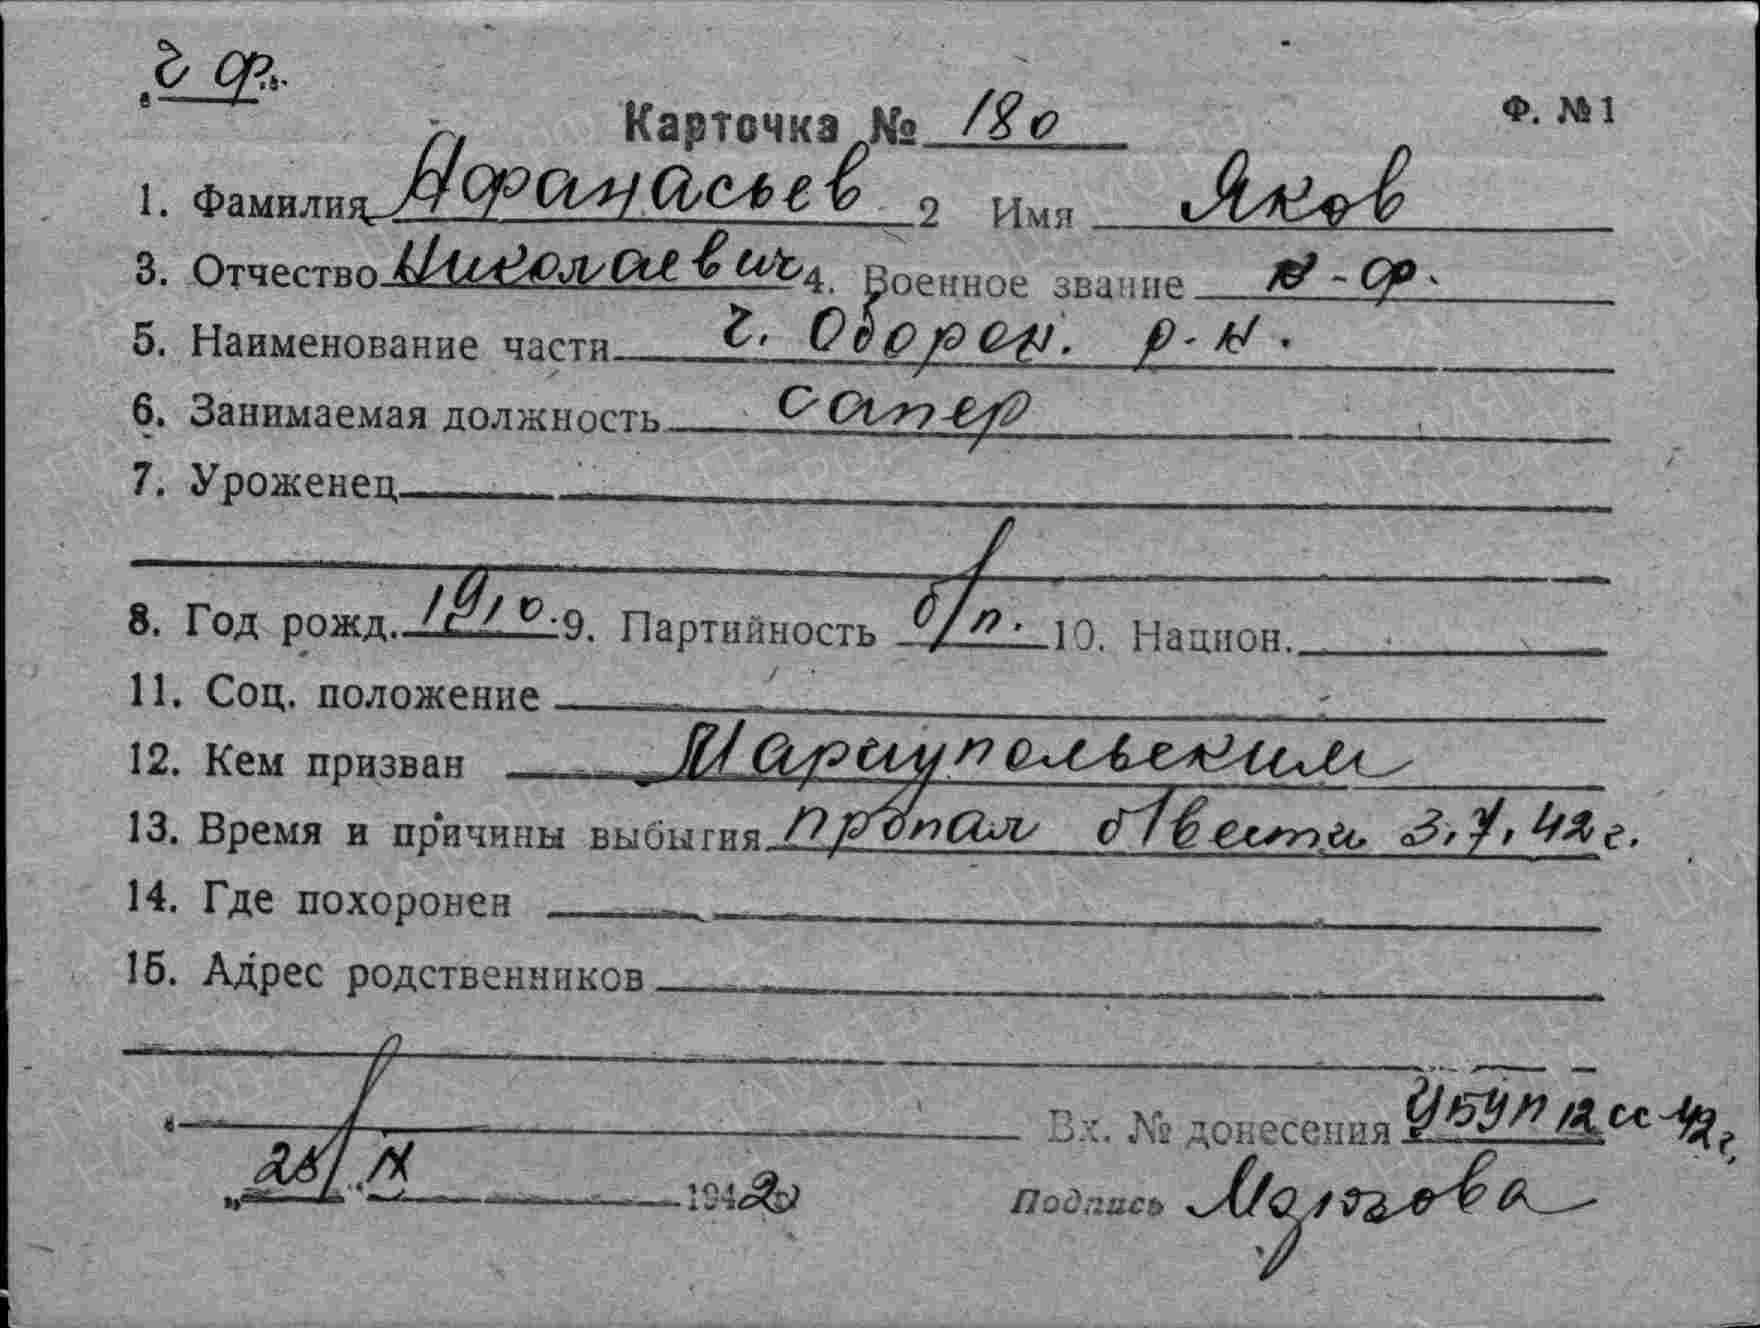 г ф.
Карточка № 180
Ф. № 1
1. Фамилия Афанасьев 2 Имя Яков
3. Отчество Николаевич 4. Военное звание к-ф.
5. Наименование части г. Оборон. р-н.
6. Занимаемая должность сапер
7. Уроженец
8. Год рожд. 1910. 9. Партийность б/п. 10. Национ.
11. Соц. положение
12. Кем призван Мариупольским
13. Время и причины выбытия пропал б/вести 3,7,42 г.
14. Где похоронен
15. Адрес родственников
Вх. № донесения УБУП 42 г.
„ IX 1942 Подпись